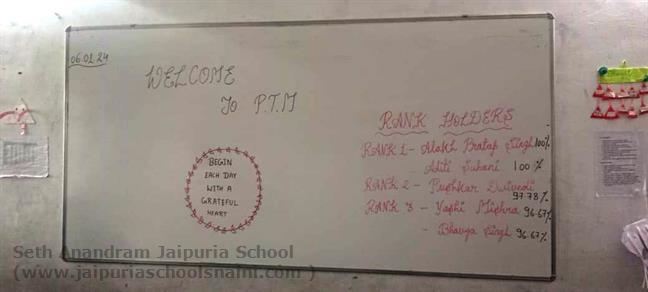 06.01.24
WELCOME
To P.T.M
BEGIN
EACH DAY
WITH A
GRATEFUL
HEART
RANK HOLDERS
RANK 1- Alakh Pratap Singh 100%
- Aditi Suhani 100%
RANK 2 - Pushkar Dwivedi
97.78%
RANK 3 - Yashi Mishra 96.67%
- Bhavya Singh 96.67%
Seth Anandram Jaipuria School
(www.jaipuriaschoolsnaini.com )